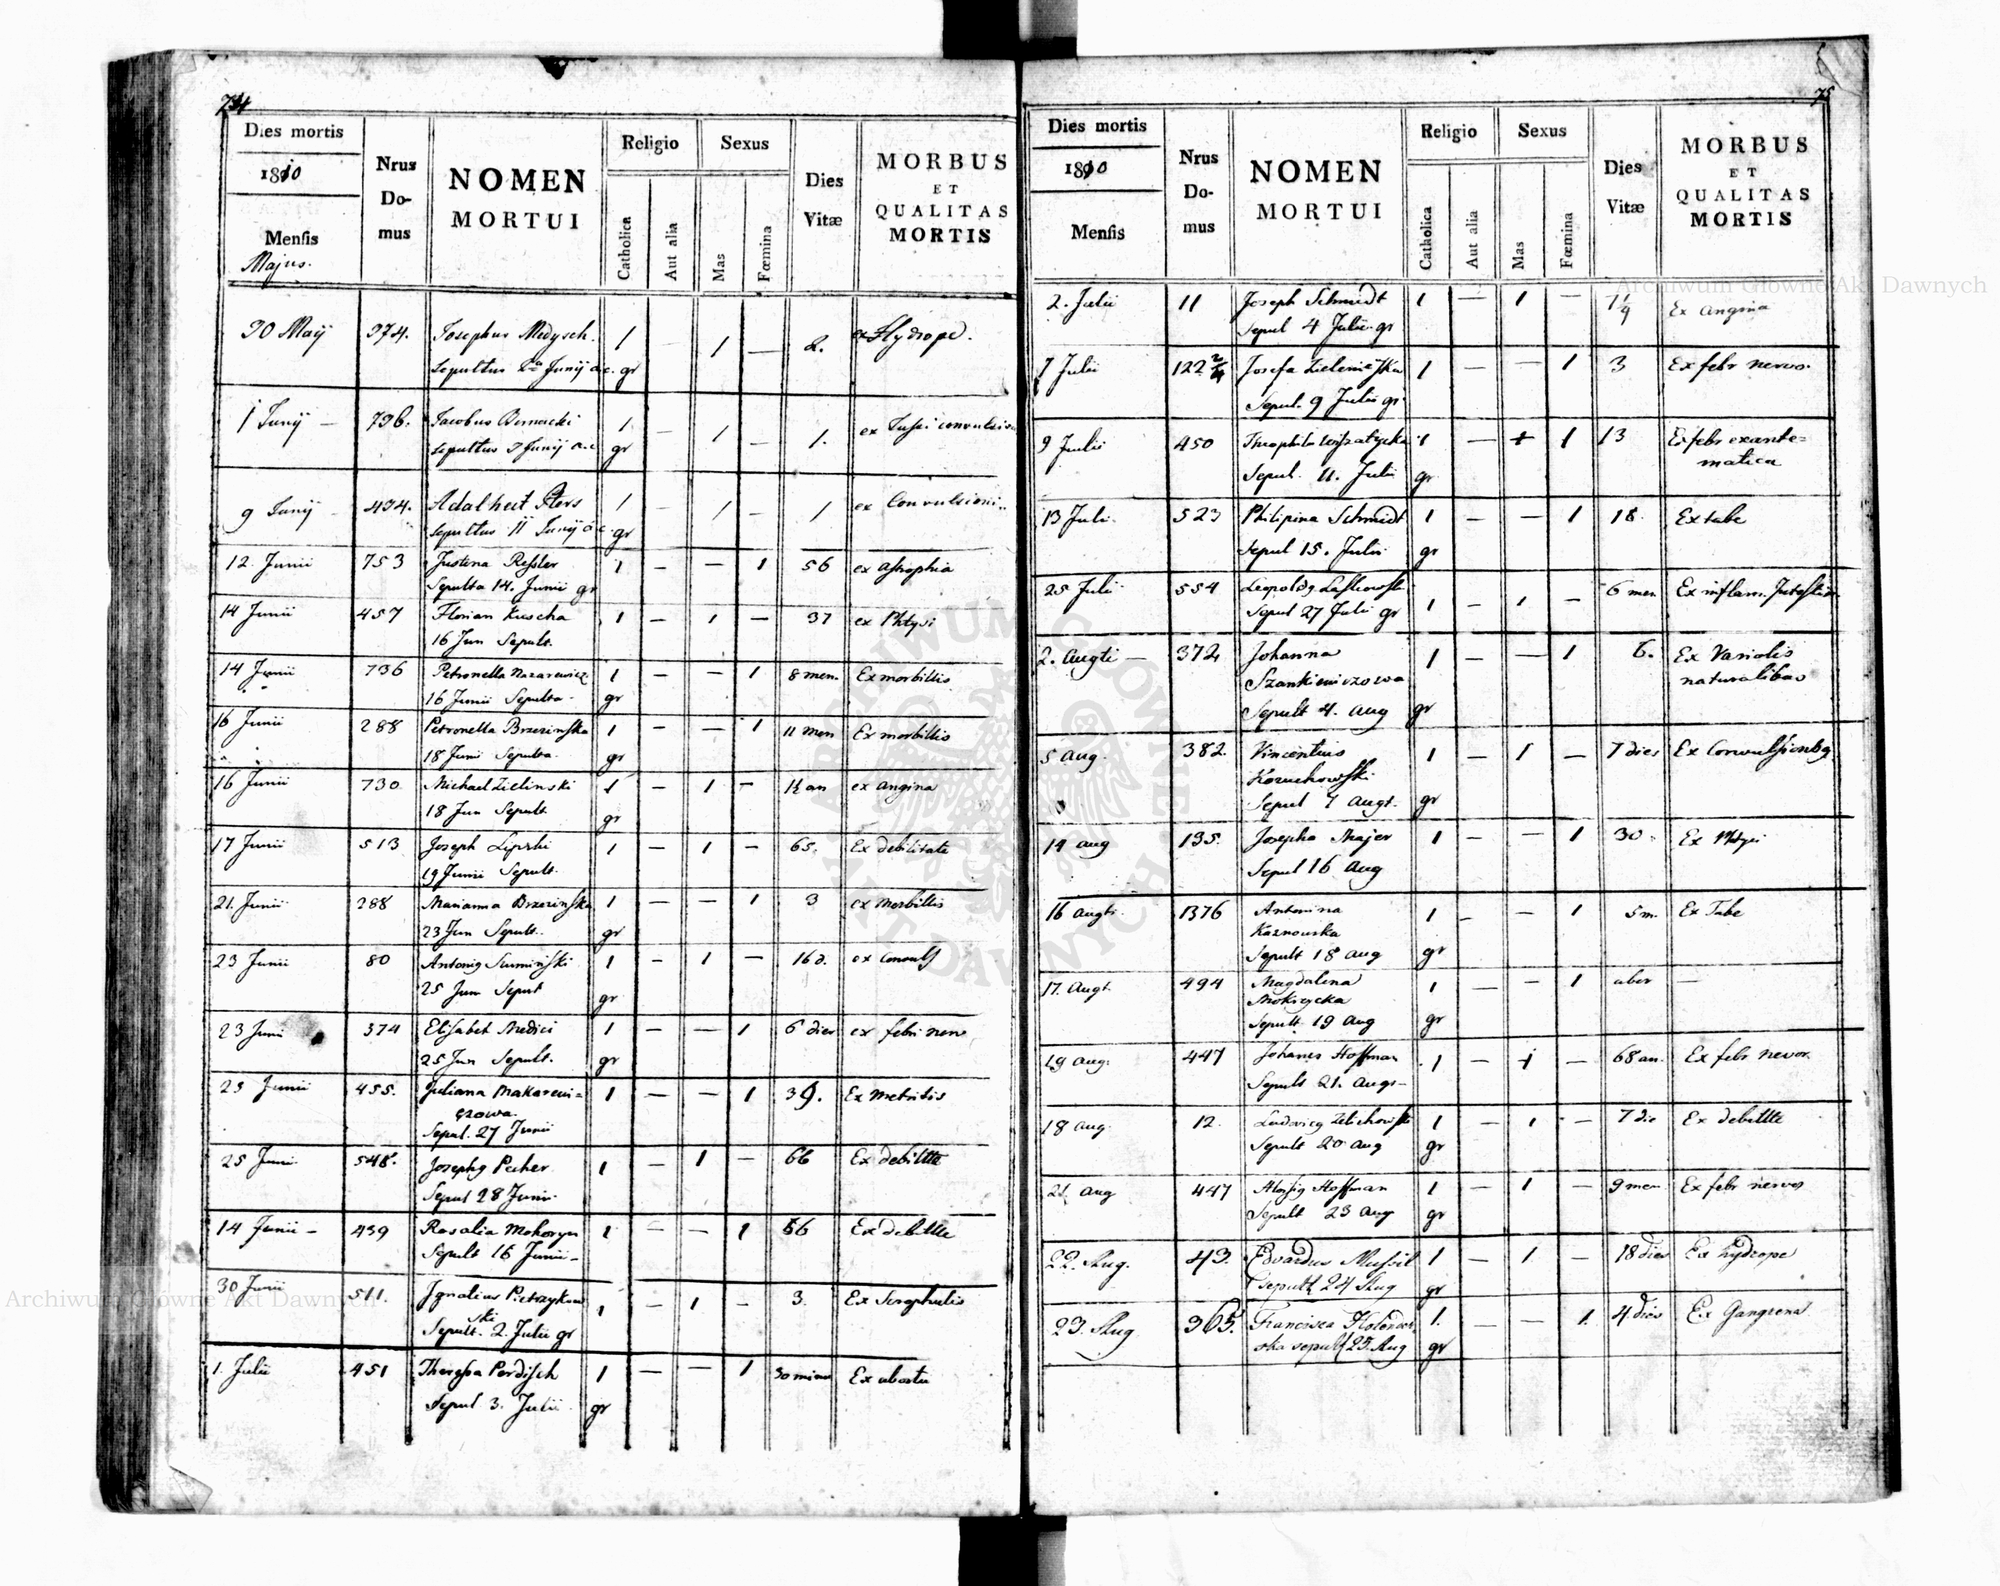 74
Dies mortis
1810
Mensis
Majus.
Nrus
Do-
mus
NOMEN
MORTUI
Religio
Catholica
Aut alia
Sexus
Mas
Fœmina
Dies
Vitæ
MORBUS
ET
QUALITAS
MORTIS
30 Maij 374. Josephus Medysch. 1 — 1 — 2. ex Hydrope.
Sepultus 2do Junij a.c. gr
1 Junij — 736. Jacobus Bernacki 1 — 1 — 1. ex Tussi convulsiva
Sepultus 3 Junij a.c. gr
9 Junij 434. 1 — 1 — 1 ex Convulsioni..
Sepultus 11 Junij a c gr
12. Junii 753 Justina Ressler 1 — — 1 56 ex Astrophia
Sepulta 14. Junii gr
14 Junii 457 Florian Kuscha 1 — 1 — 37 ex Phtysi
16 Jun Sepult.
14 Junii 736 Petronella Nazarewicz 1 — — 1 8 men. Ex morbillis
16 Junii Sepulta - gr
16 Junii 288 Petronella Brzezinska 1 — — 1 11 men Ex morbillis
18 Junii Sepulta. gr
16 Junii 730 Michael Zielinski 1 — 1 — 1½ an ex angina
18 Jun Sepult gr
17 Junii 513 Joseph Lipski 1 — 1 — 65. Ex debilitate
19 Junii Sepult.
21. Junii 288 Marianna Brzezinska 1 — — 1 3 ex Morbillis
23 Jun Sepult. gr
23 Junii 80 Antonig Sumiński 1 — 1 — 16 d. ex Convuls
25 Jun Sepult gr
23 Junii 374 Elisabet Medici 1 — — 1 6 dies ex febri nerv
25 Jun Sepult. gr
25 Junii 455. Juliana Makarewi=
czowa. 1 — — 1 39. Ex Metritis
Sepul. 27 Junii
25 Junii 548. Josephg Pecher 1 — 1 — 66 Ex debilitte
Sepul 28 Junii.
14 Junii - 439 Rosalia Mokoryn 1 — — 1 56 Ex debilitte
Sepult 16 Junii -
30 Junii 511. Ignatius Pietrzykow
ski 1 — 1 — 3. Ex Scrophulis
Sepult. 2. Julii gr
1. Julii 451 Theressa Perdisch 1 — — 1 30 minu Ex abortu
Sepul. 3. Julii gr
75
Dies mortis
1810
Mensis
Nrus
Do-
mus
NOMEN
MORTUI
Religio
Catholica
Aut alia
Sexus
Mas
Fœmina
Dies
Vitæ
MORBUS
ET
QUALITAS
MORTIS
2. Julii 11 Joseph Schmidt 1 — 1 — Ex angina
Sepul 4 Julii gr
7 Julii 122 2/4 Josefa Zieleniewska 1 — — 1 3 Ex febr nervo.
Sepul. 9 Julii gr
9 Julii 450 Theophila 1 — + 1 13 Ex febr exante=
matica
Sepul. 11. Julii gr
13 Juli. 523 Philipina Schmidt 1 — — 1 18. Ex tabe
Sepul 15. Julii gr
25 Julii 554 Leopoldg Laskowski 1 — 1 — 6 men Ex inflam. Intestin
Sepul 27 Julii gr
2. Augti — 372 Johanna 1 — — 1 6. Ex Variolis
Szankiewiczowa naturalibus
Sepult 4. Aug gr
5 Aug. 382. Vincentius 1 — 1 — 7 dies Ex Convulsionibg
Kozuchowski
Sepul 7 Augt. gr
14 Aug 135. Josepha Majer 1 — — 1 30 - Ex Phtysi
Sepul 16 Aug
16 Augti. 1376 Antonina 1 — — 1 5 m. Ex Tabe
Kaznowska
Sepult 18 Aug gr
17. Augt. 494 Magdalena 1 — — 1 abor —
Mokrzycka
Sepult. 19 Aug gr
19 Aug. 447 Johanes Hoffman 1 — 1 — 68 an. Ex febr nevor.
Sepult 21. Aug -
18 Aug. 12. Ludovicg Zelichowski 1 — 1 — 7 die Ex debilitte
Sepult 20 Aug gr
21. Aug 447 Aloysig Hoffman 1 — 1 — 9 men. Ex febr nervos
Sepult 23 Aug gr
22. Aug. 43. Edvardus Mussil 1 — 1 — 18 dies Ex hydrope
sepult 24 Aug gr
23. Aug 365. Francisca Kolendow 1. — — 1. 4 dies Ex Gangrena
ska sepult 25. Aug gr
Archiwum Główne Akt Dawnych
Archiwum Główne Akt Dawnych
ARCHIWUM GŁÓWNE AKT DAWNYCH